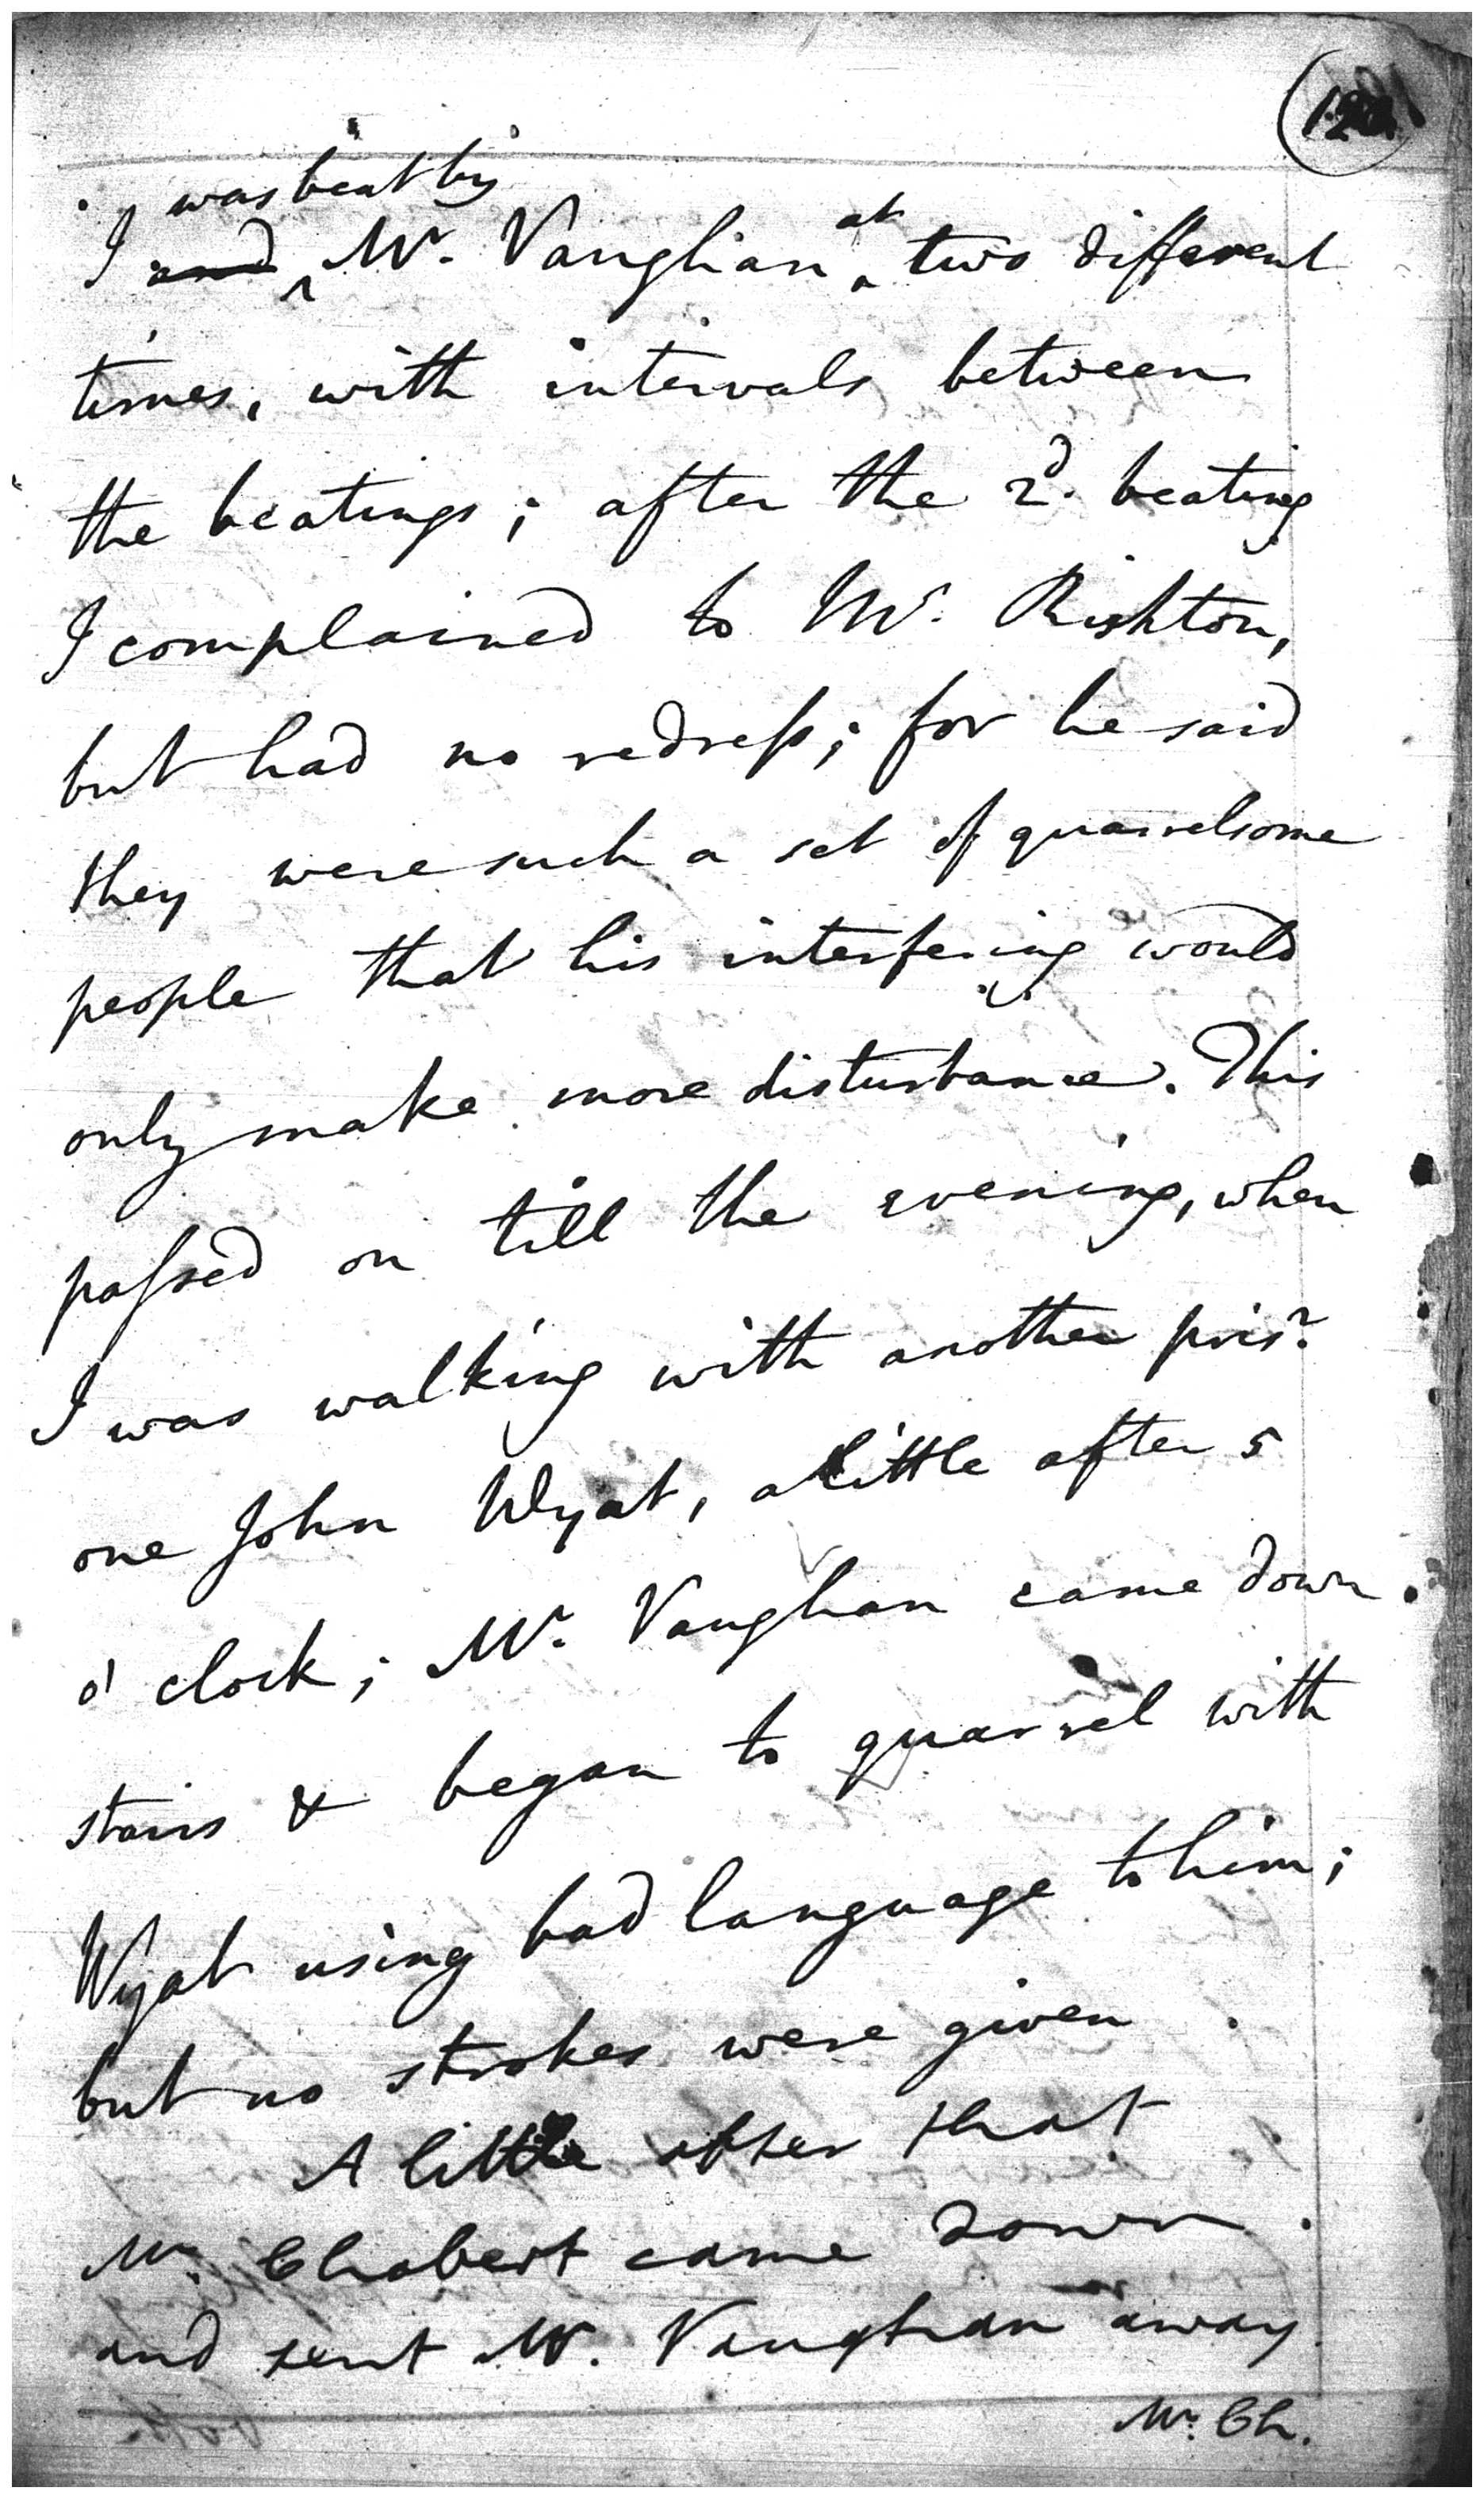 was beat by
I and ^ Mr. Vaughan ^ at two different
times, with intervals between
the beatings; after the 2d. beating
I complained to Mr. Rishton,
but had no redress; for he said
they were such a set of quarrelsome
people that his interfering would
only make more disturbance. This
passed on till the evening, when
I was walking with another prisr.
one John Wyat, a little after 5
o'clock; Mr. Vaughan came down
stairs & began to quarrel with
Wyat using bad language to him;
but no strokes were given.
A little after that
Mr. Chabert came down
and sent Mr. Vaughan away
Mr. Ch.